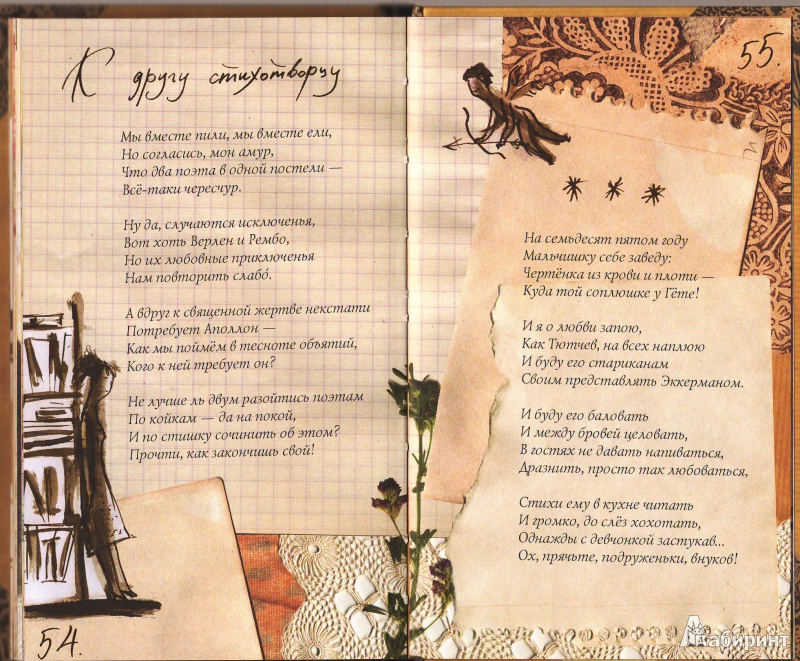 К другу стихотворцу
Мы вместе пили, мы вместе ели,
Но согласись, мон амур,
Что два поэта в одной постели —
Всё-таки чересчур.
Ну да, случаются исключенья,
Вот хоть Верлен и Рембо,
Но их любовные приключенья
Нам повторить слабо́.
А вдруг к священной жертве некстати
Потребует Аполлон —
Как мы поймём в тесноте объятий,
Кого к ней требует он?
Не лучше ль двум разойтись поэтам
По койкам — да на покой,
И по стишку сочинить об этом?
Прочти, как закончишь свой!
54.
55.
* * *
На семьдесят пятом году
Мальчишку себе заведу:
Чертёнка из крови и плоти —
Куда той соплюшке у Гёте!
И я о любви запою,
Как Тютчев, на всех наплюю
И буду его стариканам
Своим представлять Эккерманом.
И буду его баловать
И между бровей целовать,
В гостях не давать напиваться,
Дразнить, просто так любоваться,
Стихи ему в кухне читать
И громко, до слёз хохотать,
Однажды с девчонкой застукав...
Ох, прячьте, подруженьки, внуков!
Лабиринт